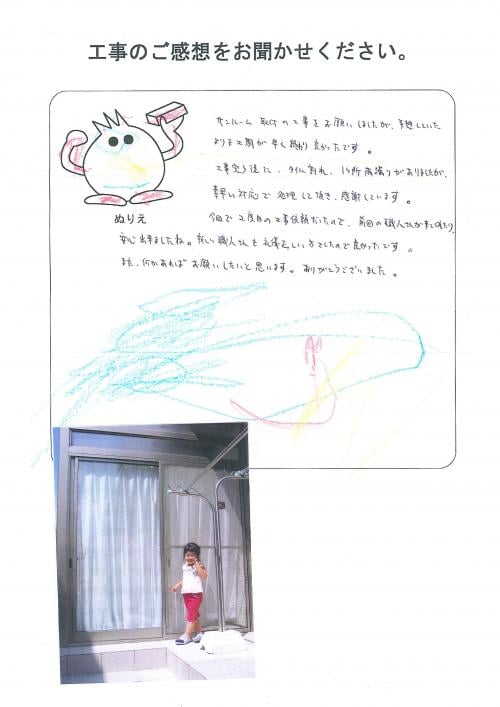 工事のご感想をお聞かせください。
サンルーム取付の工事をお願いしましたが、予想していた
よりも工期が早く終わり良かったです。
工事完了後に、タイル割れ、1ヶ所雨漏りがありましたが、
素早い対応で処理して頂き、感謝しています。
ぬりえ
今回で2度目の工事依頼だったので、前回の職人さんが来て頂たり、
安心出来ましたね。新しい職人さんも礼儀正しい方でしたので良かったです。
また、何かあればお願いしたいと思います。ありがとうございました。